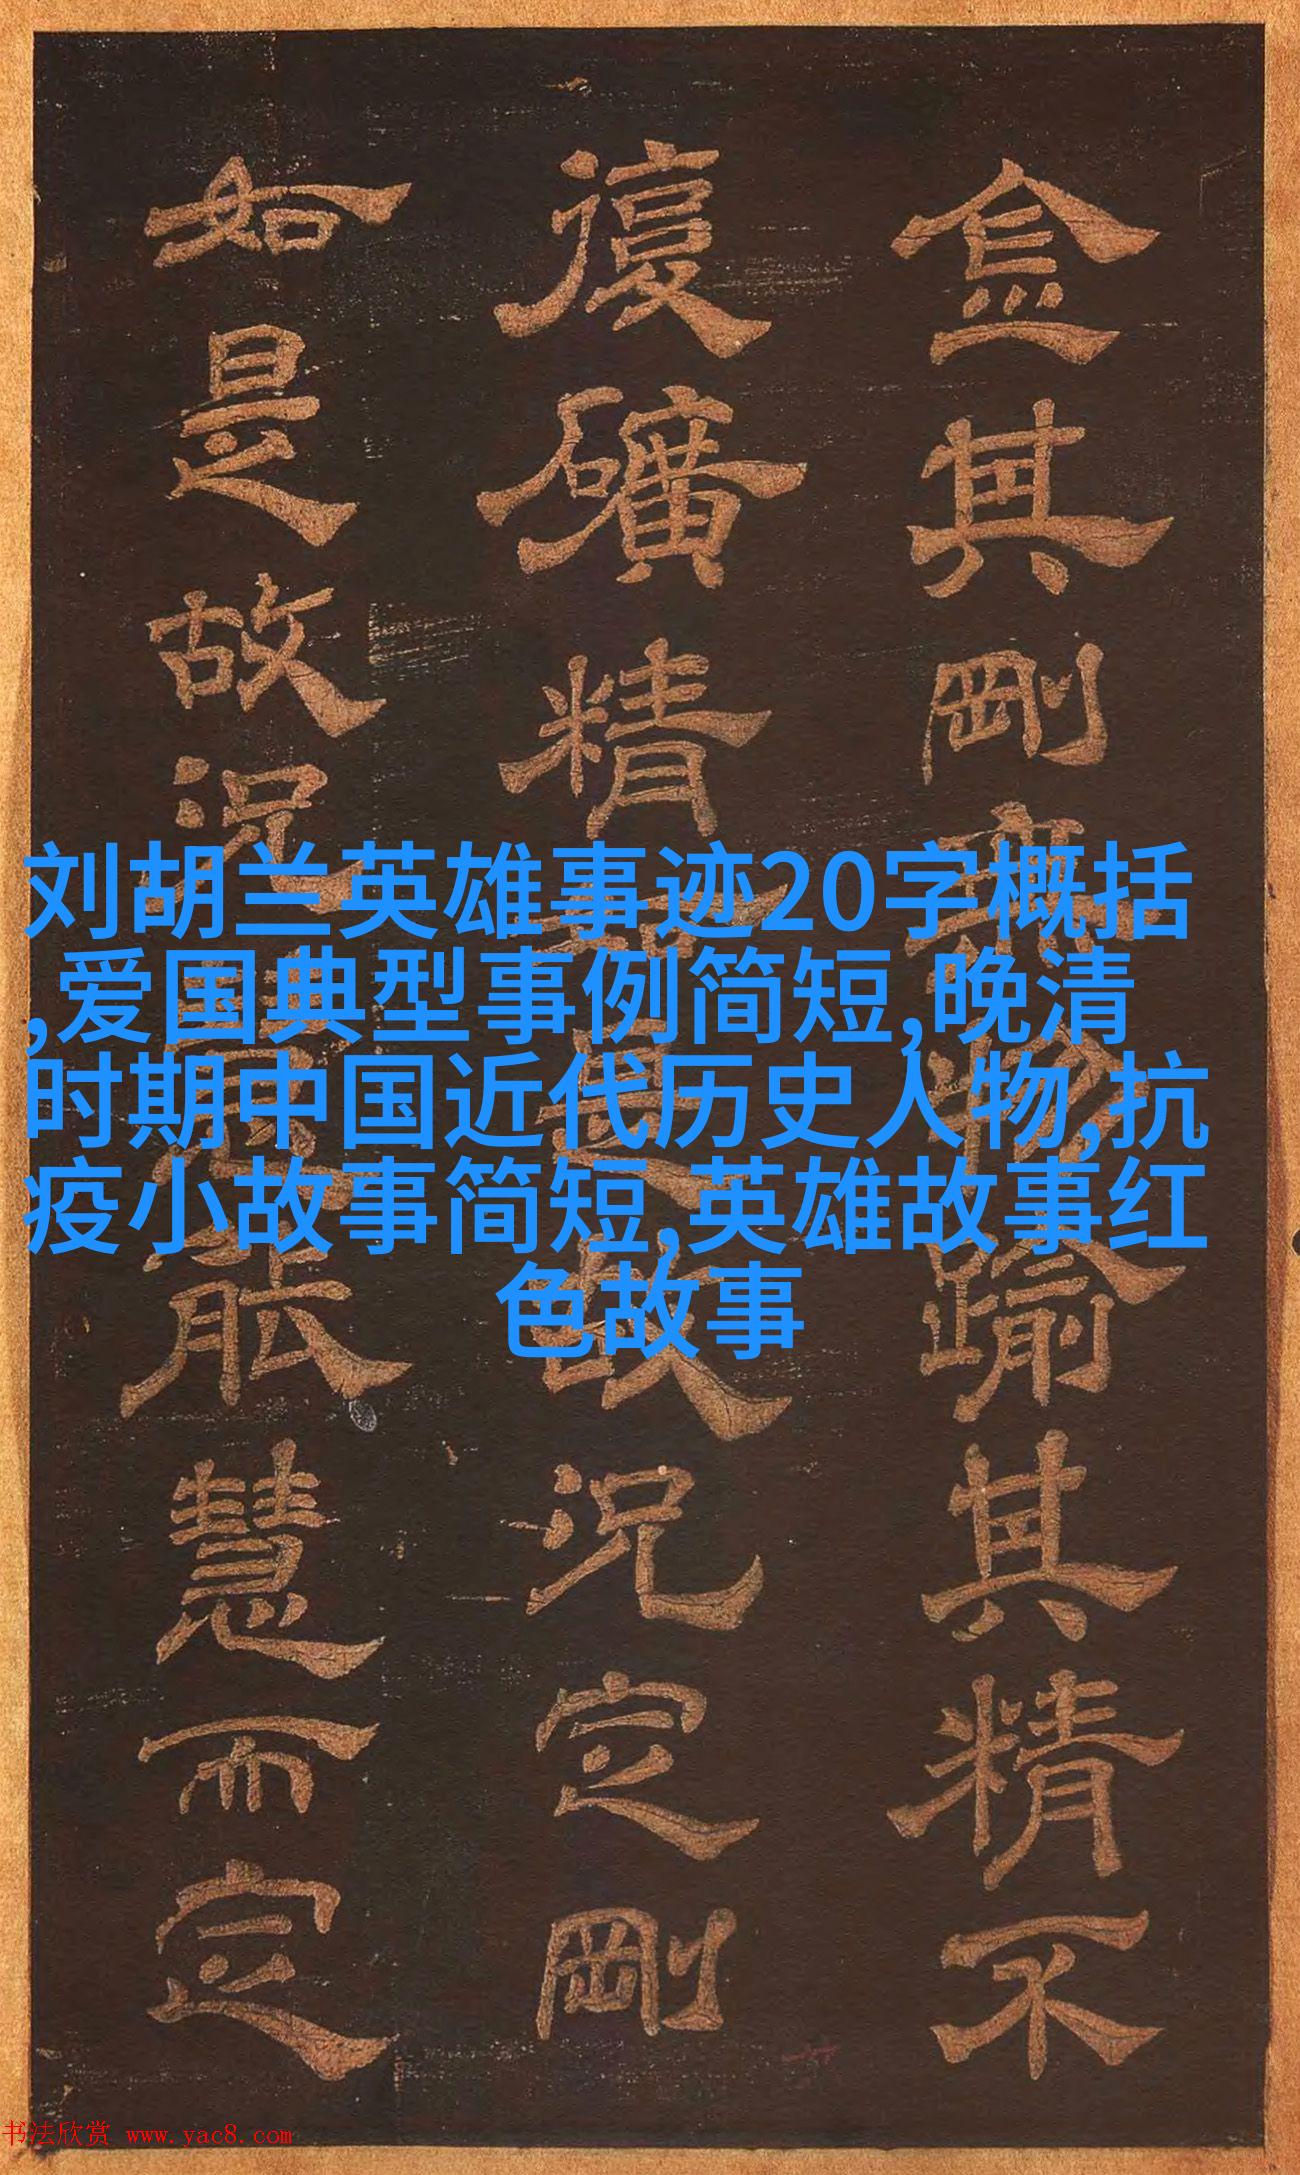 金其剛無物踰其精不
復礦精故況定剛
如是故況能慧而定
刘胡兰英雄事迹20字概括
,爱国典型事例简短,晚清
时期中国近代历史人物,抗
疫小故事简短,英雄故事红
色故事
书法欣赏 www.yac8.com